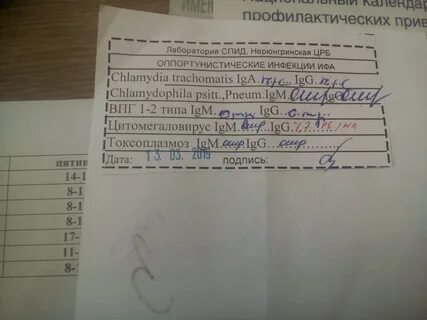 Национальный календар
профилактических прив
Лаборатория СПИД. Нерюнгринская ЦРБ
ОППОРТУНИСТИЧЕСКИЕ ИНФЕКЦИИ ИФА
Chlamydia trachomatis IgA. IgG.
Chlamydophila psitt.,Pneum.IgM. отр IgG отр
ВПГ 1-2 типа IgM. отр IgG. отр
Цитомегаловирус IgM. отр IgG
Токсоплазмоз IgM. отр IgG отр
Дата: 13. 03. 2019 подпись:
пятни
14-1
8-1
8-1
17-
8-1
8-